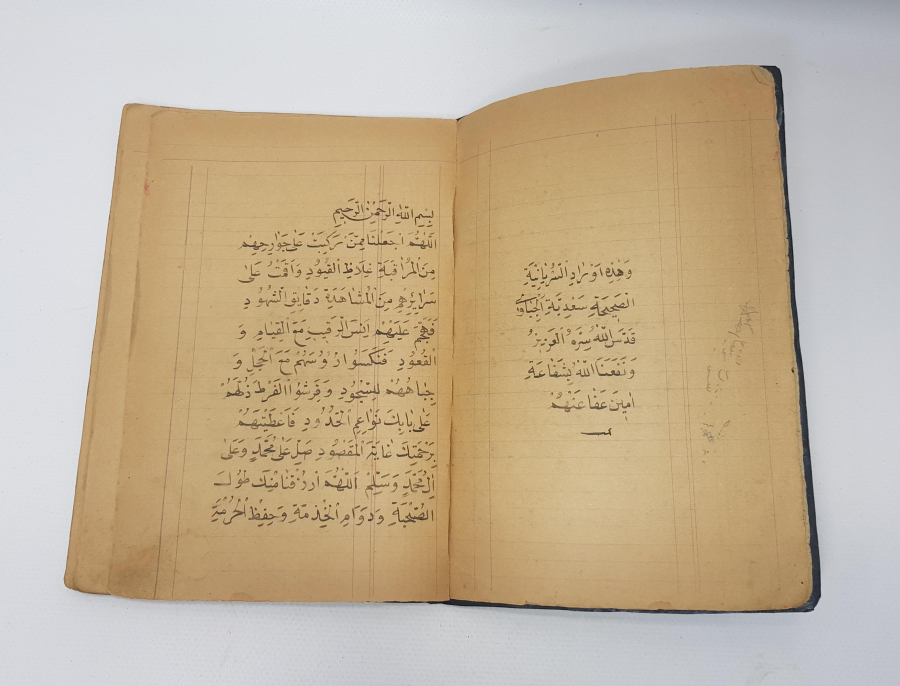 وَهٰذِهِ اَوْرَادِ السُّرْيَانِيَّةِ
الصَّحِيحَةِ سَعْدِيَّةِ الْجِبَاوِى
قَدَّسَ اللّٰهُ سِرَّهُ الْعَزِيزُ
وَنَفَعَنَا اللّٰهُ بِشَفَاعَةِ
اٰمِينَ عَفَا عَنْهُمْ
بِسْمِ اللّٰهِ الرَّحْمٰنِ الرَّحِيمِ
اَللّٰهُمَّ اجْعَلْنَا مِمَّنْ تَرَكَبَتْ عَلٰى جَوَارِحِهِمْ
مِنَ الْمُرَاقَبَةِ غِلَاظِ الْقُيُودِ وَاَقَمْتَ عَلٰى
سَرَايِرِهِمْ مِنَ الْمُشَاهَدَةِ دَقَايِقِ الشُّهُودِ
فَهَجَمَ عَلَيْهِمْ اَنِسَ الرَّقِيبِ مَعَ الْقِيَامِ وَ
الْقُعُودِ فَنَكَسَوا رُؤُسَهُمْ مَعَ الْخَجَلِ وَ
جِبَاهُهُمْ لِلسُّجُودِ وَفَرَشُوا الْفَرْطِ ذُلِّهِمْ
عَلٰى بَابِكَ نَوَاعِمَ الْخُدُودِ فَاَعْطَيْتَهُمْ
بِرَحْمَتِكَ غَايَةَ الْمَقْصُودِ صَلِّ عَلٰى مُحَمَّدٍ وَعَلٰى
اٰلِ مُحَمَّدٍ وَسَلِّمْ اَللّٰهُمَّ ارْزُقْنَا مِنْكَ طُولَ
الصُّحْبَةِ وَدَوَامِ الْخِذْمَةِ وَحِفْظَ الْحُرْمَةِ